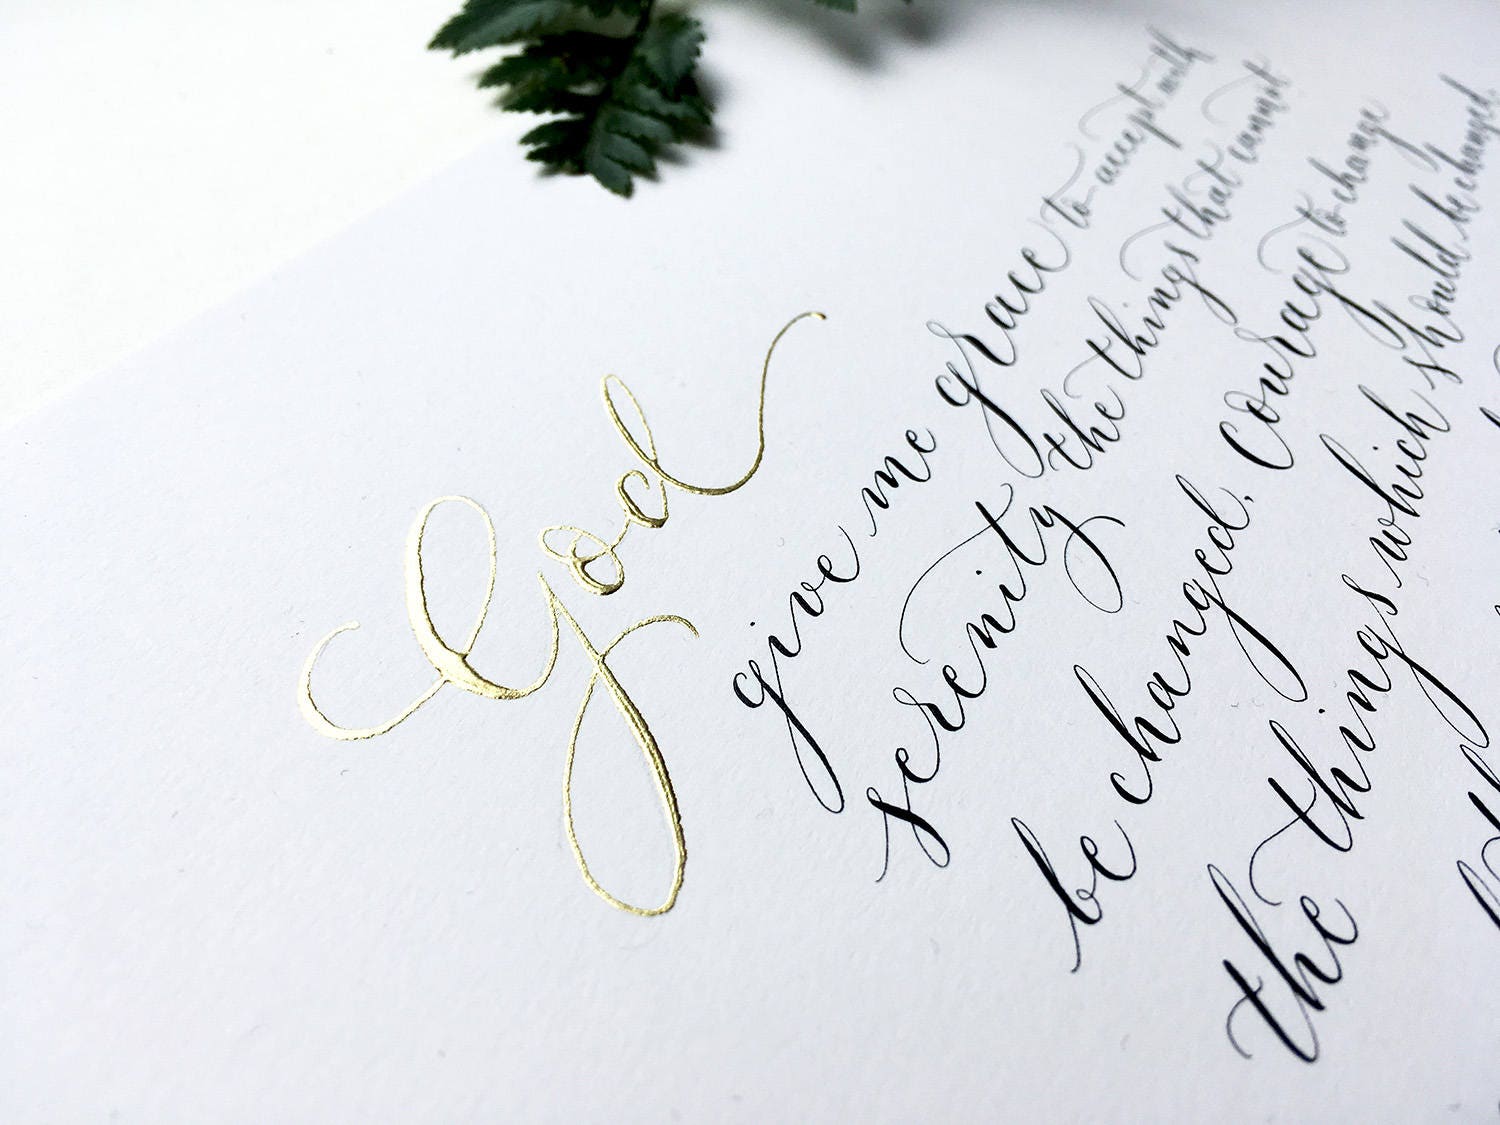 God
give me grace to accept with
serenity the things that cannot
be changed, Courage to change
the things which should be changed,